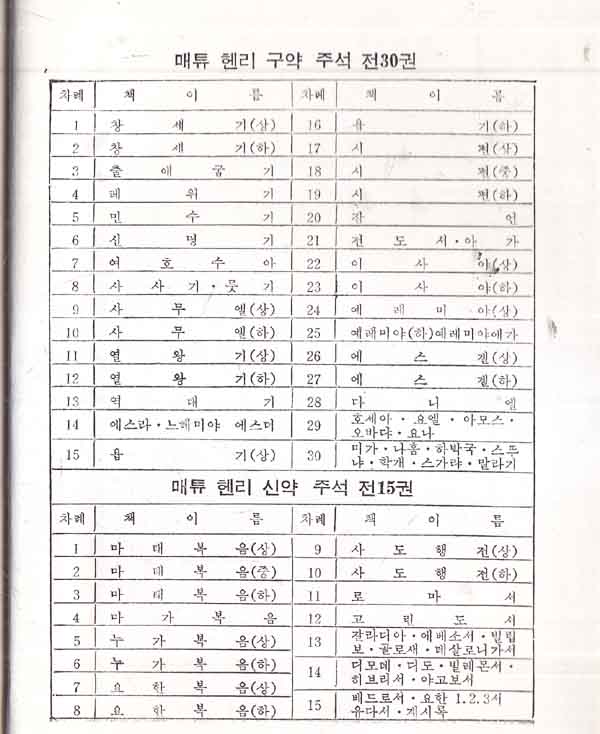 매튜 헨리 구약 주석 전30권
차례 책 이 름 차례 책 이 름
1 창 세 기(상) 16 욥 기(하)
2 창 세 기(하) 17 시 편(상)
3 출 애 굽 기 18 시 편(중)
4 레 위 기 19 시 편(하)
5 민 수 기 20 잠 언
6 신 명 기 21 전 도 서·아 가
7 여 호 수 아 22 이 사 야(상)
8 사 사 기·룻 기 23 이 사 야(하)
9 사 무 엘(상) 24 예 레 미 야(상)
10 사 무 엘(하) 25 예레미야(하)예레미야애가
11 열 왕 기(상) 26 에 스 겔(상)
12 열 왕 기(하) 27 에 스 겔(하)
13 역 대 기 28 다 니 엘
14 에스라·느헤미야 에스더 29 호세아·요엘·아모스·
오바댜·요나
15 욥 기(상) 30 미가·나훔·하박국·스뚜
냐·학개·스가랴·말라기
매튜 헨리 신약 주석 전15권
차례 책 이 름 차례 책 이 름
1 마 태 복 음(상) 9 사 도 행 전(상)
2 마 태 복 음(중) 10 사 도 행 전(하)
3 마 태 복 음(하) 11 로 마 서
4 마 가 복 음 12 고 린 도 서
5 누 가 복 음(상) 13 갈라디아·에베소서·빌립
보·골로새·데살로니가서
6 누 가 복 음(하) 14 디모데·디도·빌레몬서·
히브리서·야고보서
7 요 한 복 음(상) 15 베드로서·요한 1.2.3서
유다서·계시록
8 요 한 복 음(하)